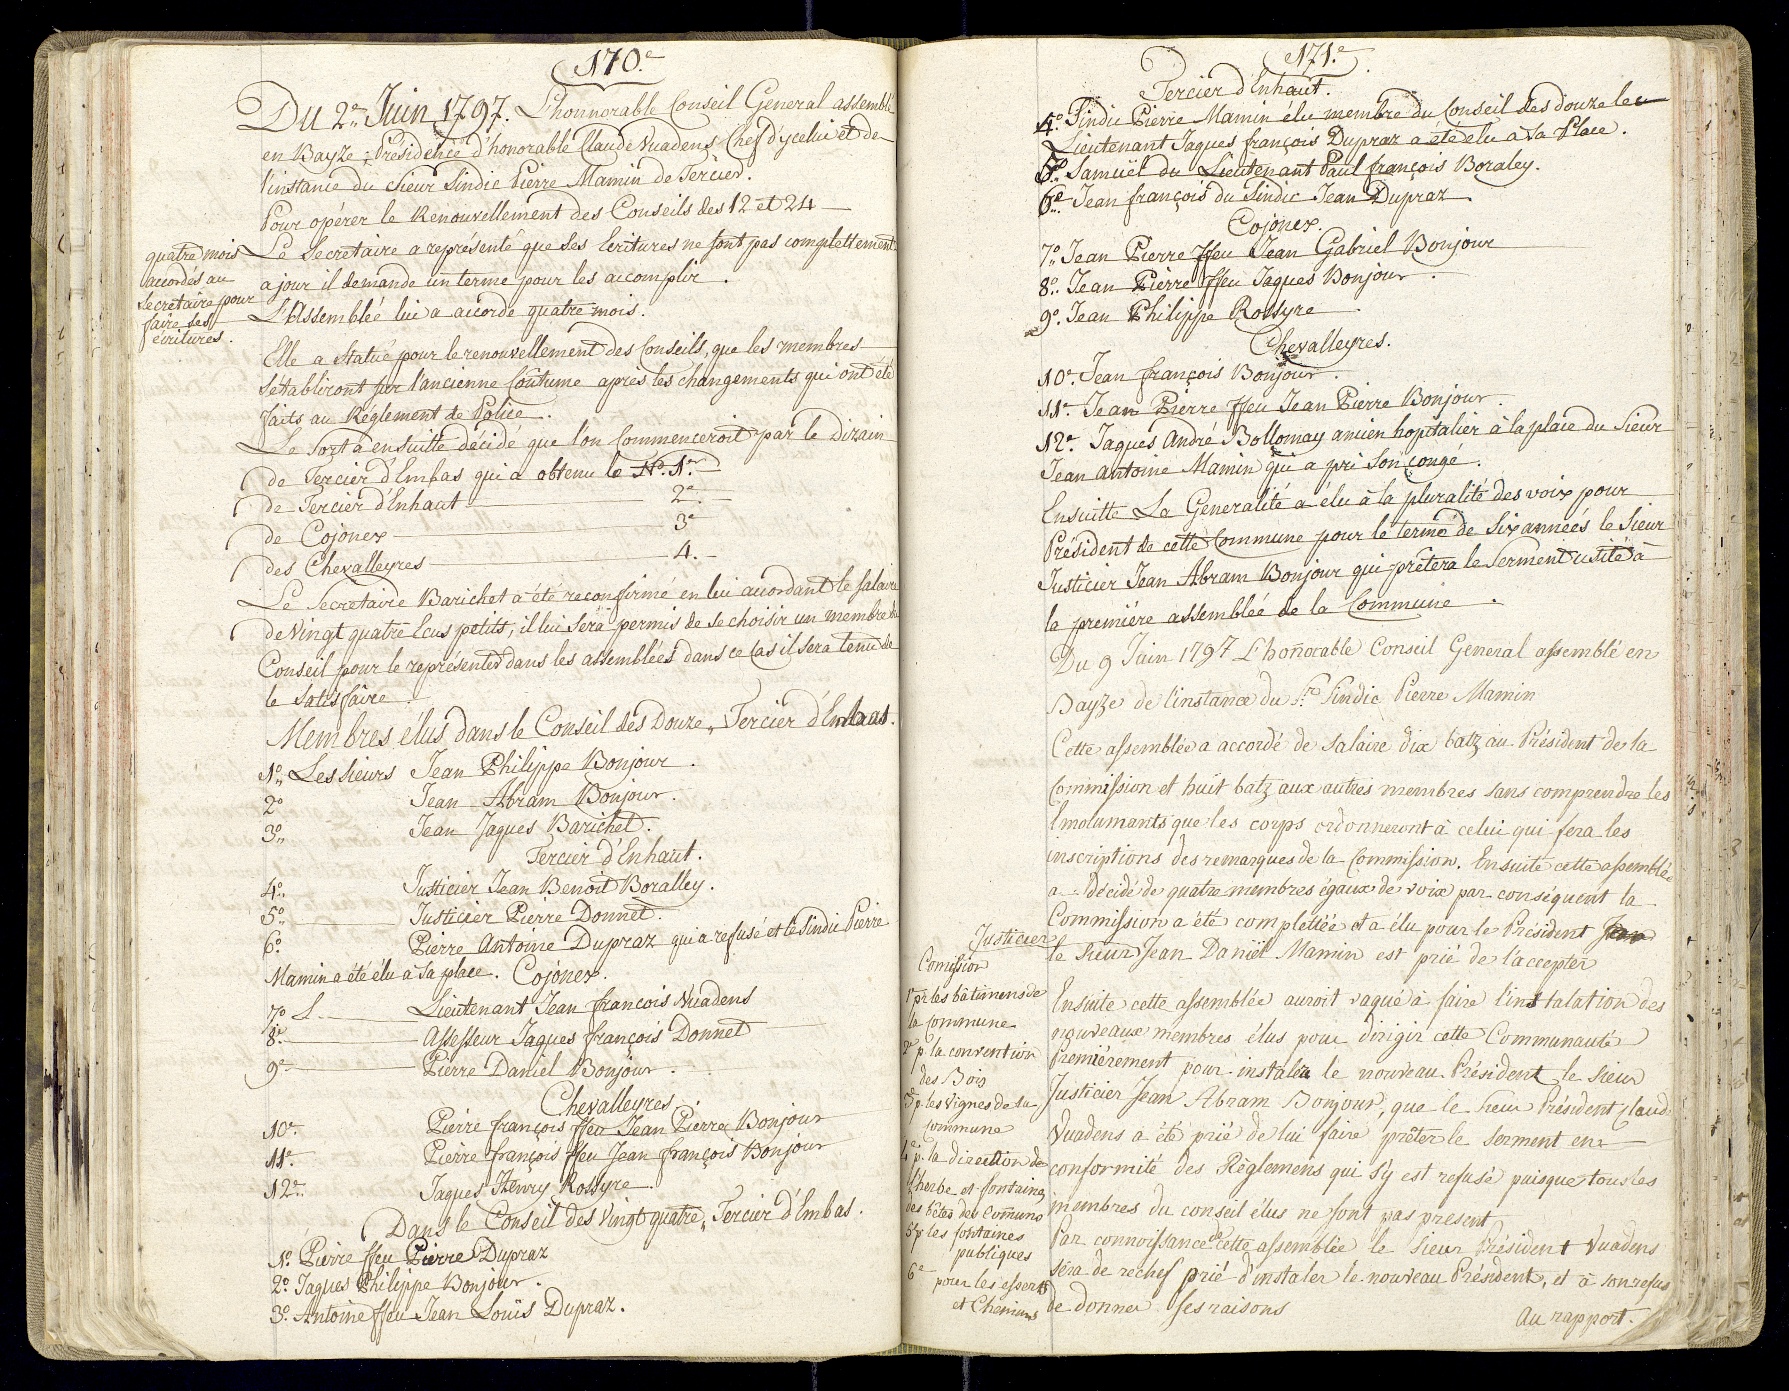 170.e
Du 2e Juin 1797. L'honnorable Conseil General assemblé
en Bayze ; Présidence d'honorable Claude Vuadens Chef d'ycelui et de
l'instance du sieur Sindic Pierre Mamin de Tercier.
Pour opérer le Renouvellement des Conseils des 12 et 24
Le Secretaire a représenté que ses Ecritures ne sont pas complettement
a jour il demande un terme pour les acomplir .
L'Assemblé lui a acordé quatre mois.
quatre mois
accordés au
secretaire pour
faire ses
écritures.
Elle a Statué pour le renouvellement des Conseils, que les membres
S'établiront sur l'ancienne Coutume apres les changements qui ont été
faits au Réglement de Police .
Le sort a ensuitte décidé que l'on Commenceroit par le Dizain
de Tercier d'Embas qui a obtenu le N°. 1er
de Tercier d'Enhaut 2e
de Cojonex 3e
des Chevalleyres 4.
Le Secretaire Barichet a été reconfirmé en lui accordant le salaire
de Vingt quatre Ecus petits, il lui sera permis de se choisir un membre du
Conseil pour le représenter dans les assemblées dans ce Cas il sera tenu de
le Satisfaire .
Membres élus dans le Conseil des Douze, Tercier d'Embas.
1o Les sieurs Jean Philippe Bonjour .
2o Jean Abram Bonjour.
3o Jean Jaques Barichet.
Tercier d'Enhaut.
4o Justicier Jean Benoit Boralley.
5o Justicier Pierre Donnet.
6o Pierre Antoine Dupraz qui a refusé et le Sindic Pierre
Mamin a été élu à sa place. Cojonex.
7o L. Lieutenant Jean francois Vuadens
8e Assesseur Jaques françois Donnet
9e Pierre Daniel Bonjour .
Chevalleyres.
10e Pierre françois ffeu Jean Pierre Bonjour
11e Pierre françois ffeu Jean françois Bonjour
12e Jaques Henry Rossyre .
Dans le Conseil des Vingt quatre, Tercier d'Embas.
1o Pierre ffeu Pierre Dupraz
2o Jaques Philippe Bonjour .
3o Antoine ffeu Jean Louis Dupraz.
171.e
Tercier d'Enhaut.
4o Sindic Pierre Mamin élu membre du Conseil des douze le
Lieutenant Jaques françois Dupraz a été élu à sa Place.
5o Samuël du Lieutenant Paul françois Boraley.
6e Jean françois du Sindic Jean Dupraz
Cojonex.
7o Jean Pierre ffeu Jean Gabriel Bonjour
8o Jean Pierre ffeu Jaques Bonjour .
9o. Jean Philippe Rossyre
Chevalleyres.
10e. Jean françois Bonjour .
11e. Jean Pierre ffeu Jean Pierre Bonjour .
12e. Jaques André Bollomay ancien hopitalier à la place du Sieur
Jean Antoine Mamin qui a pri son congé .
Ensuitte La Generalité a élu à la pluralité des voix pour
Président de cette Commune pour le terme de Six années le Sieur
Justicier Jean Abram Bonjour qui prêtera le serment usité à
la première assemblée de la Commune .
Du 9 Juin 1797 L'honorable Conseil General assemblé en
Bayze de l'instance du Sr. Sindic Pierre Mamin
Cette assemblée a accordé de salaire dix batz au Président de la
Commission et huit batz aux autres membres sans comprendre les
Emolumants que les corps ordonneront à celui qui fera les
inscriptions des remarques de la Commission. Ensuite cette assemblée
a décidé de quatre membres égaux de voix par conséquent la
Commission a été complettée et a élu pour le Président Jean
Justicier
le Sieur Jean Daniel Mamin est prié de l'accepter
Comission
1e pr les bâtimens de
la Commune
2e p. la convention
des Bois
3e p. les Vignes de la
Commune
4e p. la direction de
l'herbe et fontaines
des bêtes des Comuns
5e p les fontaines
publiques
6e pour les esserts
et Chemins
Ensuite cette assemblée auroit vaqué à faire l'instalation des
nouveaux membres élus pour dirigir cette Communauté
Premièrement pour instaler le nouveau Président le sieur
Justicier Jean Abram Bonjour, que le Sieur Président Claude
Vuadens a été prié de lui faire prêter le serment en
conformité des Règlemens qui s'y est refusé puisque tous les
membres du conseil élus ne sont pas present
Par connoissance de cette assemblée le Sieur Président Vuadens
sera de rechef prié d'instaler le nouveau Président, et à son refus
de donner ses raisons
Au rapport.